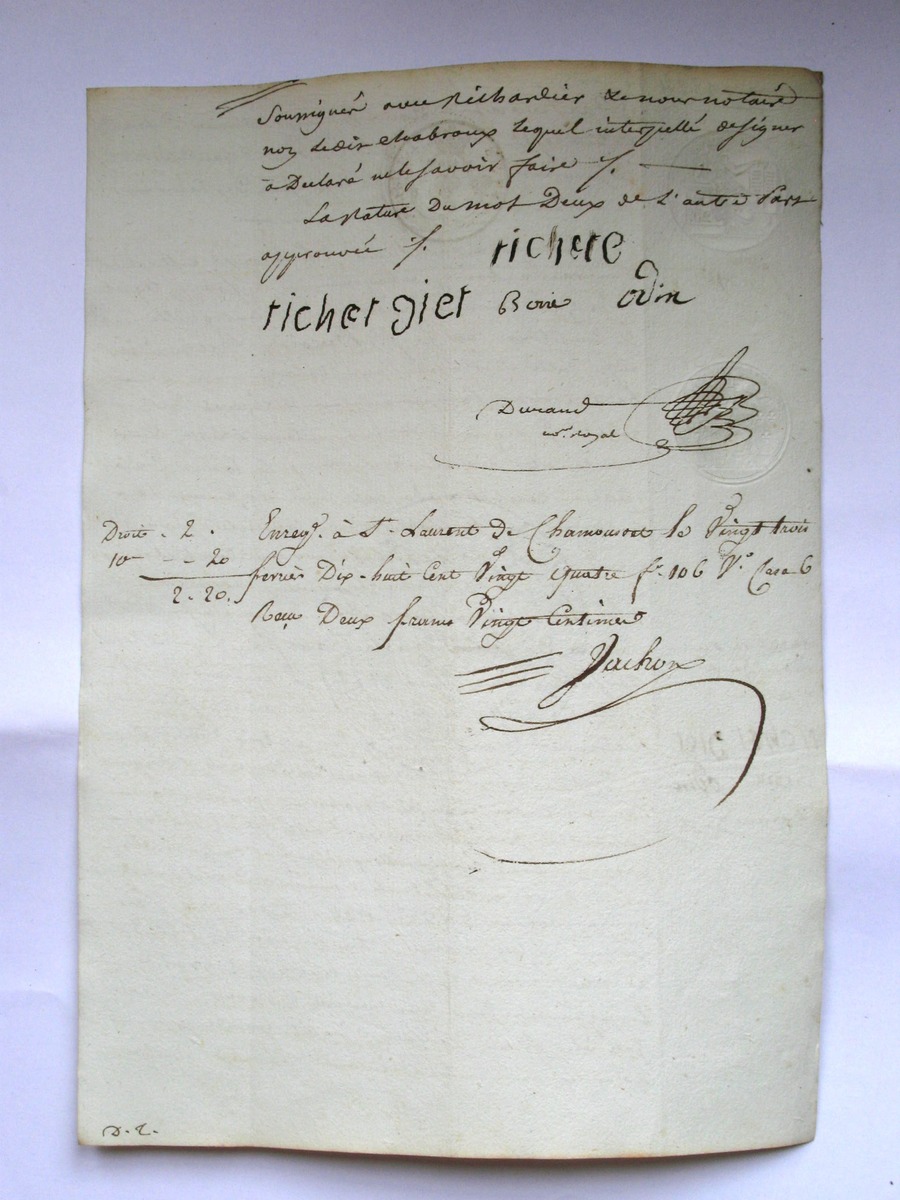 Soussignés avec Richardier & nous notaire
non ledit chabroux lequel interpellé de signer
a Declaré ne le savoir faire ./.
La Rature du mot Deux de l'autre Part
approuvée ./.
richere
richer Diet Boire odin
Durand
not. royal
Droit - 2.
10e - - 20
2 - 20.
Enregt. à St. Laurent de Chamousset le Vingt trois
fevrier Dix-huit Cent Vingt quatre fo. 106 Vo. Case 6
Reçu Deux francs Vingt Centimes
Vachon
D. 2.